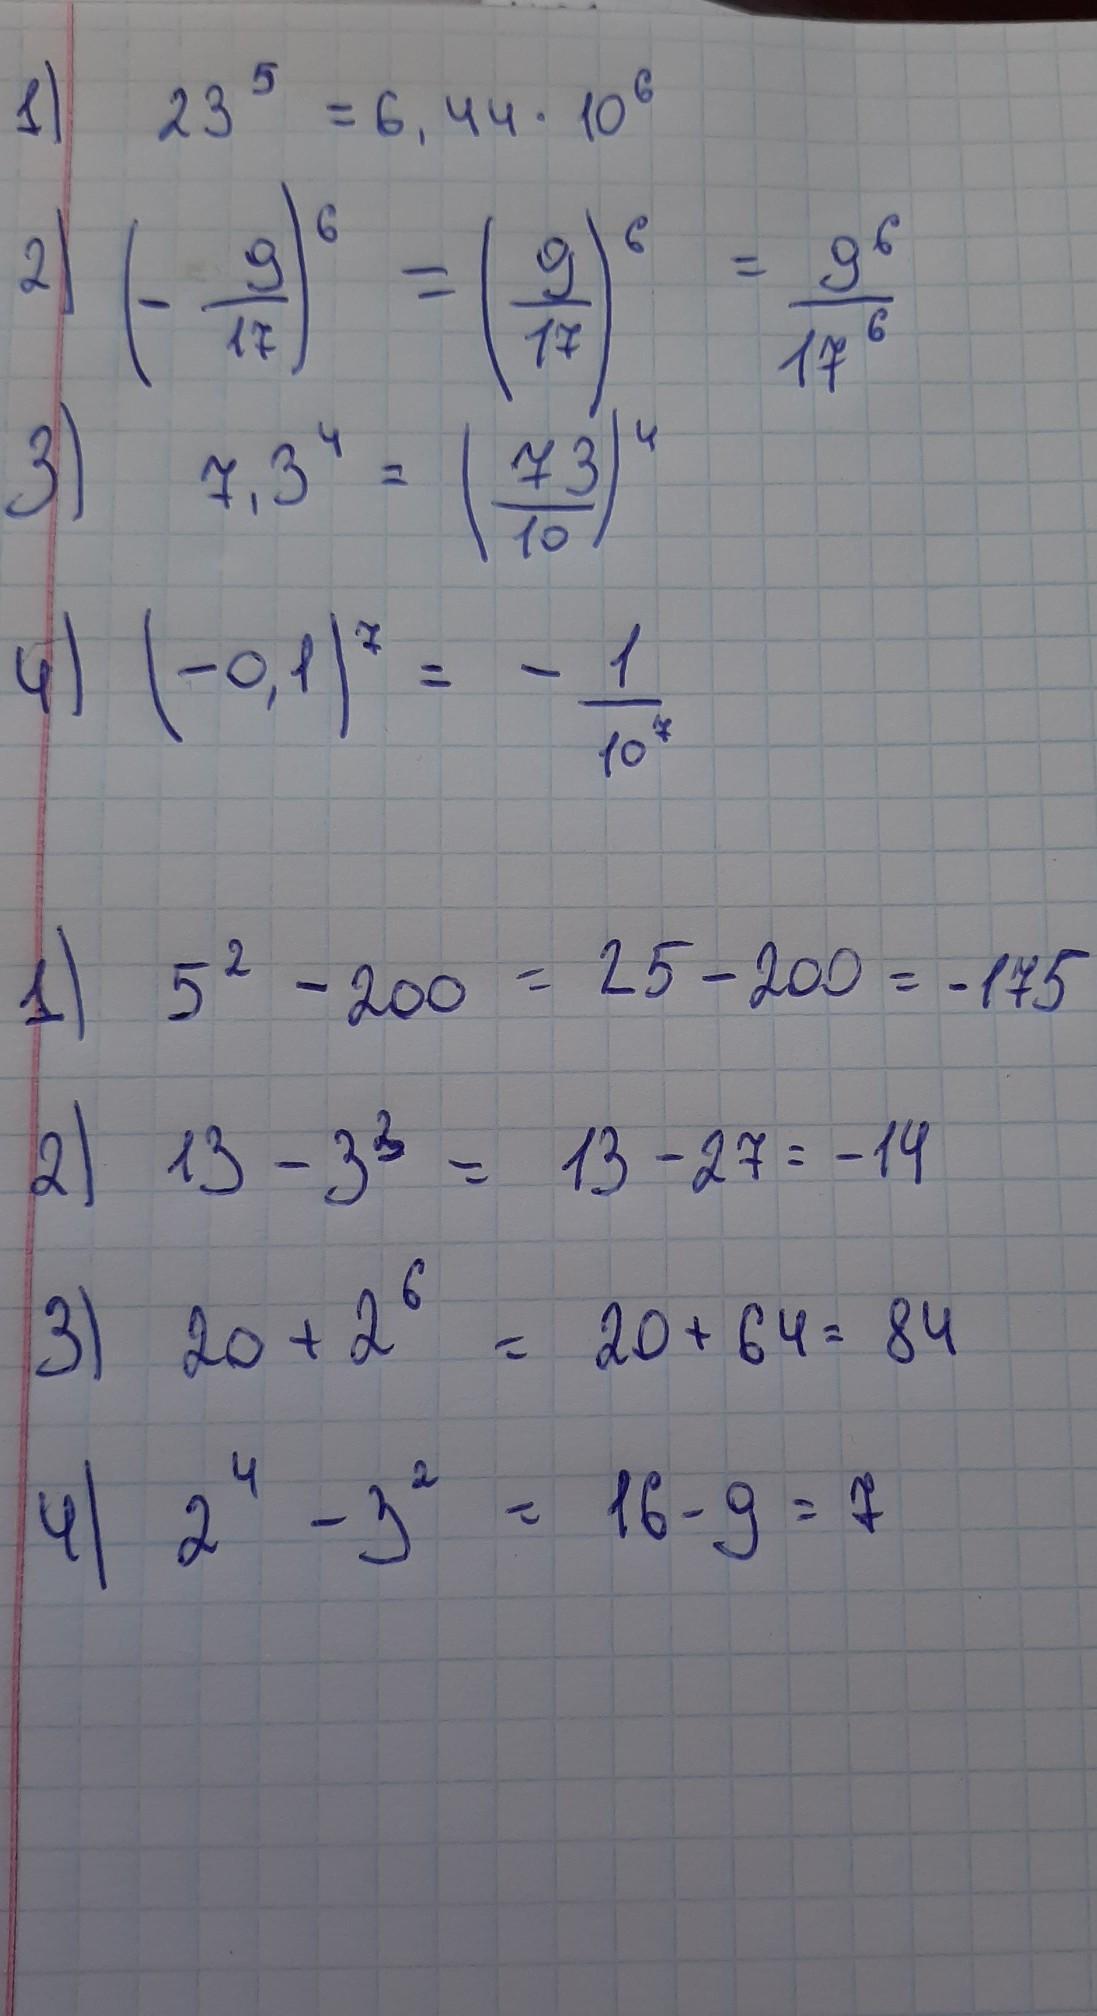 1) 23⁵ = 6,44 · 10⁶
2) (- 9/17)⁶ = (9/17)⁶ = 9⁶/17⁶
3) 7,3⁴ = (73/10)⁴
4) (-0,1)⁷ = - 1/10⁷
1) 5² - 200 = 25 - 200 = -175
2) 13 - 3³ = 13 - 27 = -14
3) 20 + 2⁶ = 20 + 64 = 84
4) 2⁴ - 3² = 16 - 9 = 7